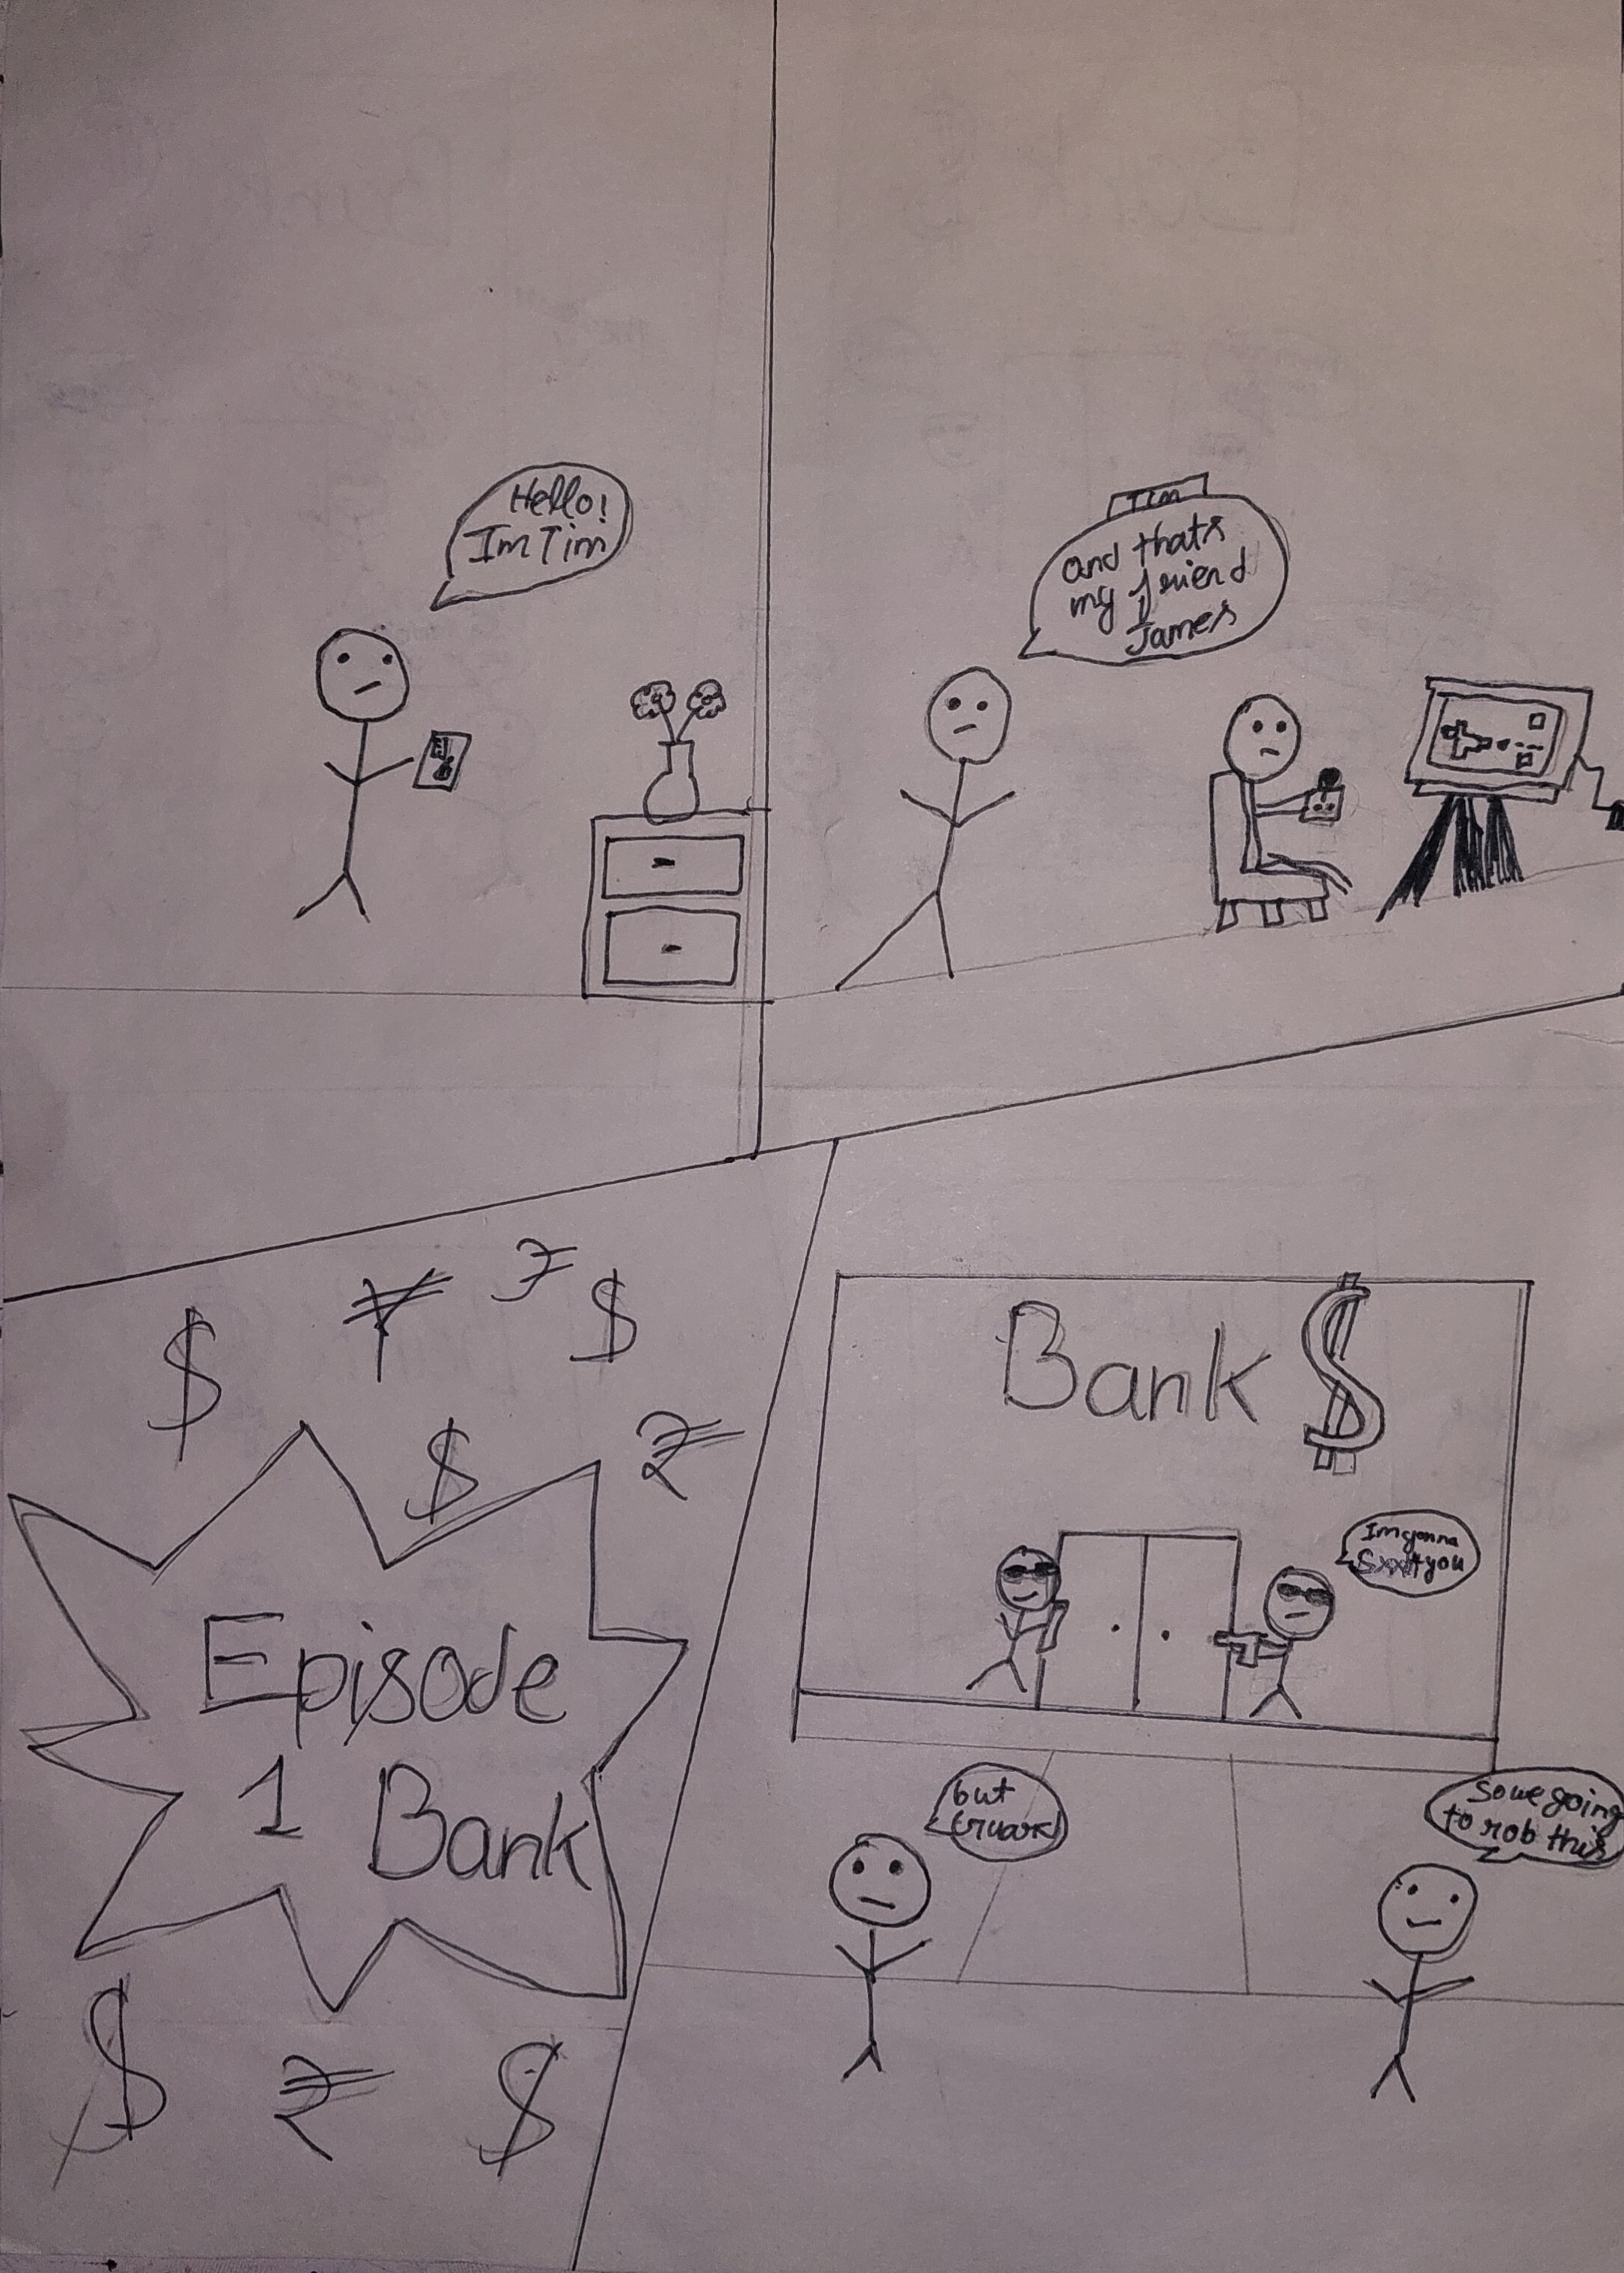 Hello!
Im Tim
Tim
and thats
my friend
James
$ ¥ ₹ $
$ ₹
Episode
1 Bank
$ ₹ $
Bank $
Im gonna
Sxxt you
but
Guard
So we going
to rob this